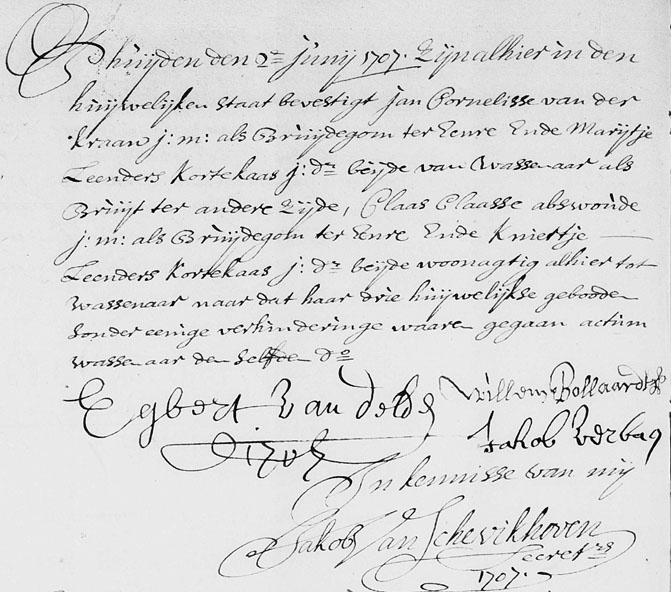 Op huijden den 2en Junij 1707. Zijn alhier in den
huijwelijken staat bevestigt Jan Cornelisse van der
Kraan j: m: als Bruijdegom ter Eenre Ende Marijtje
Leenders Kortekaas j: dr beijde van Wassenaar als
Bruijt ter andere Zijde, Claas Claasse abswoude
j: m: als Bruijdegom ter Eenre Ende Kniertje
Leenders Kortekaas j: dr beijde woonagtig alhier tot
Wassenaar naar dat haar drie huijwelijkse geboode
sonder eenige verhinderinge waare gegaan actum
Wassenaar den selfden do
Egbert van Willem Bollaardt
1707 Jakob Verbag
In kennisse van mij
Jakob Van Schevikhoven
Secretrs
1707.